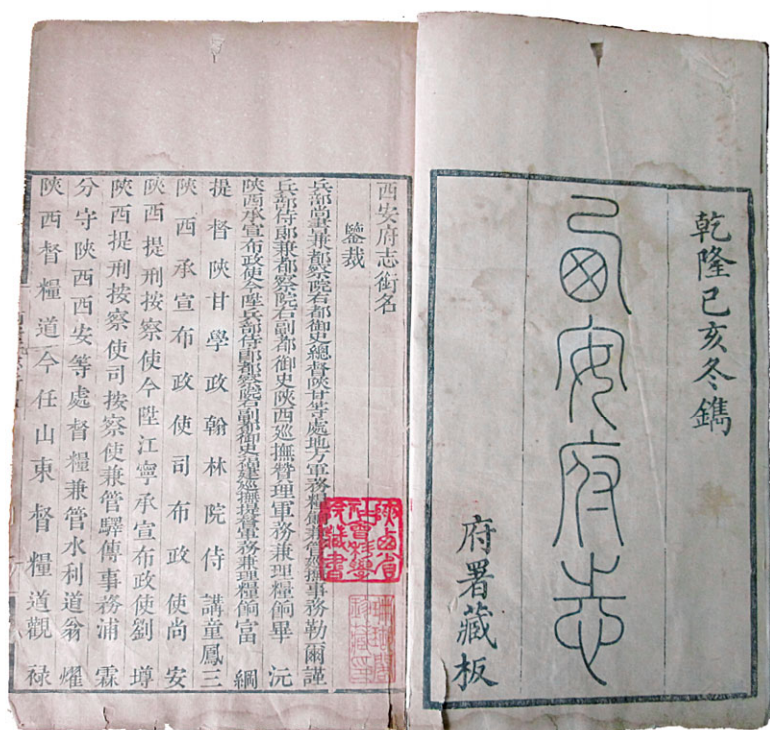 乾隆己亥冬鐫
西安府志
府署藏板
西安府志銜名
鑒裁
兵部尚書兼都察院右都御史總督陝甘等處地方軍務糧餉兼管巡撫事務勒爾謹
兵部侍郎兼都察院右副都御史陝西巡撫贊理軍務兼理糧餉畢沅
陝西承宣布政使今陞兵部侍郎都察院右副都御史福建巡撫提督軍務兼理糧餉富綱
提督陝甘學政翰林院侍講童鳳三
陝西承宣布政使司布政使尚安
陝西提刑按察使今陞江寧承宣布政使劉墫
陝西提刑按察使司按察使兼管驛傳事務浦霖
分守陝西西安等處督糧兼管水利道翁燿
陝西督糧道今任山東督糧道觀祿
陝西省
社會科學
院藏書